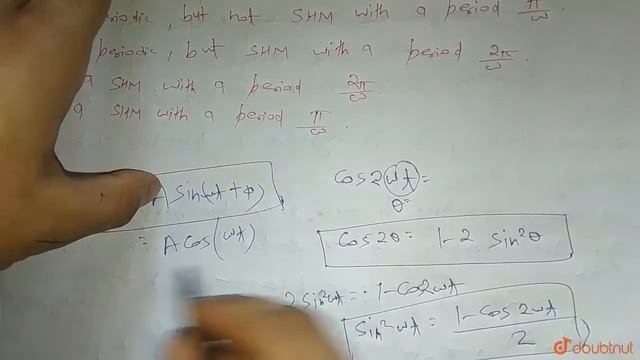 periodic, but not SHM with a period π/ω.
periodic, but SHM with a period 2π/ω.
a SHM with a period 2π/ω.
a SHM with a period π/ω.
A sin(ωt + φ)
= A cos(ωt)
cos 2ωt =
θ =
cos2θ = 1-2 sin²θ
2 sin²ωt = 1-cos2ωt
sin²ωt = 1-cos2ωt / 2
doubtnut